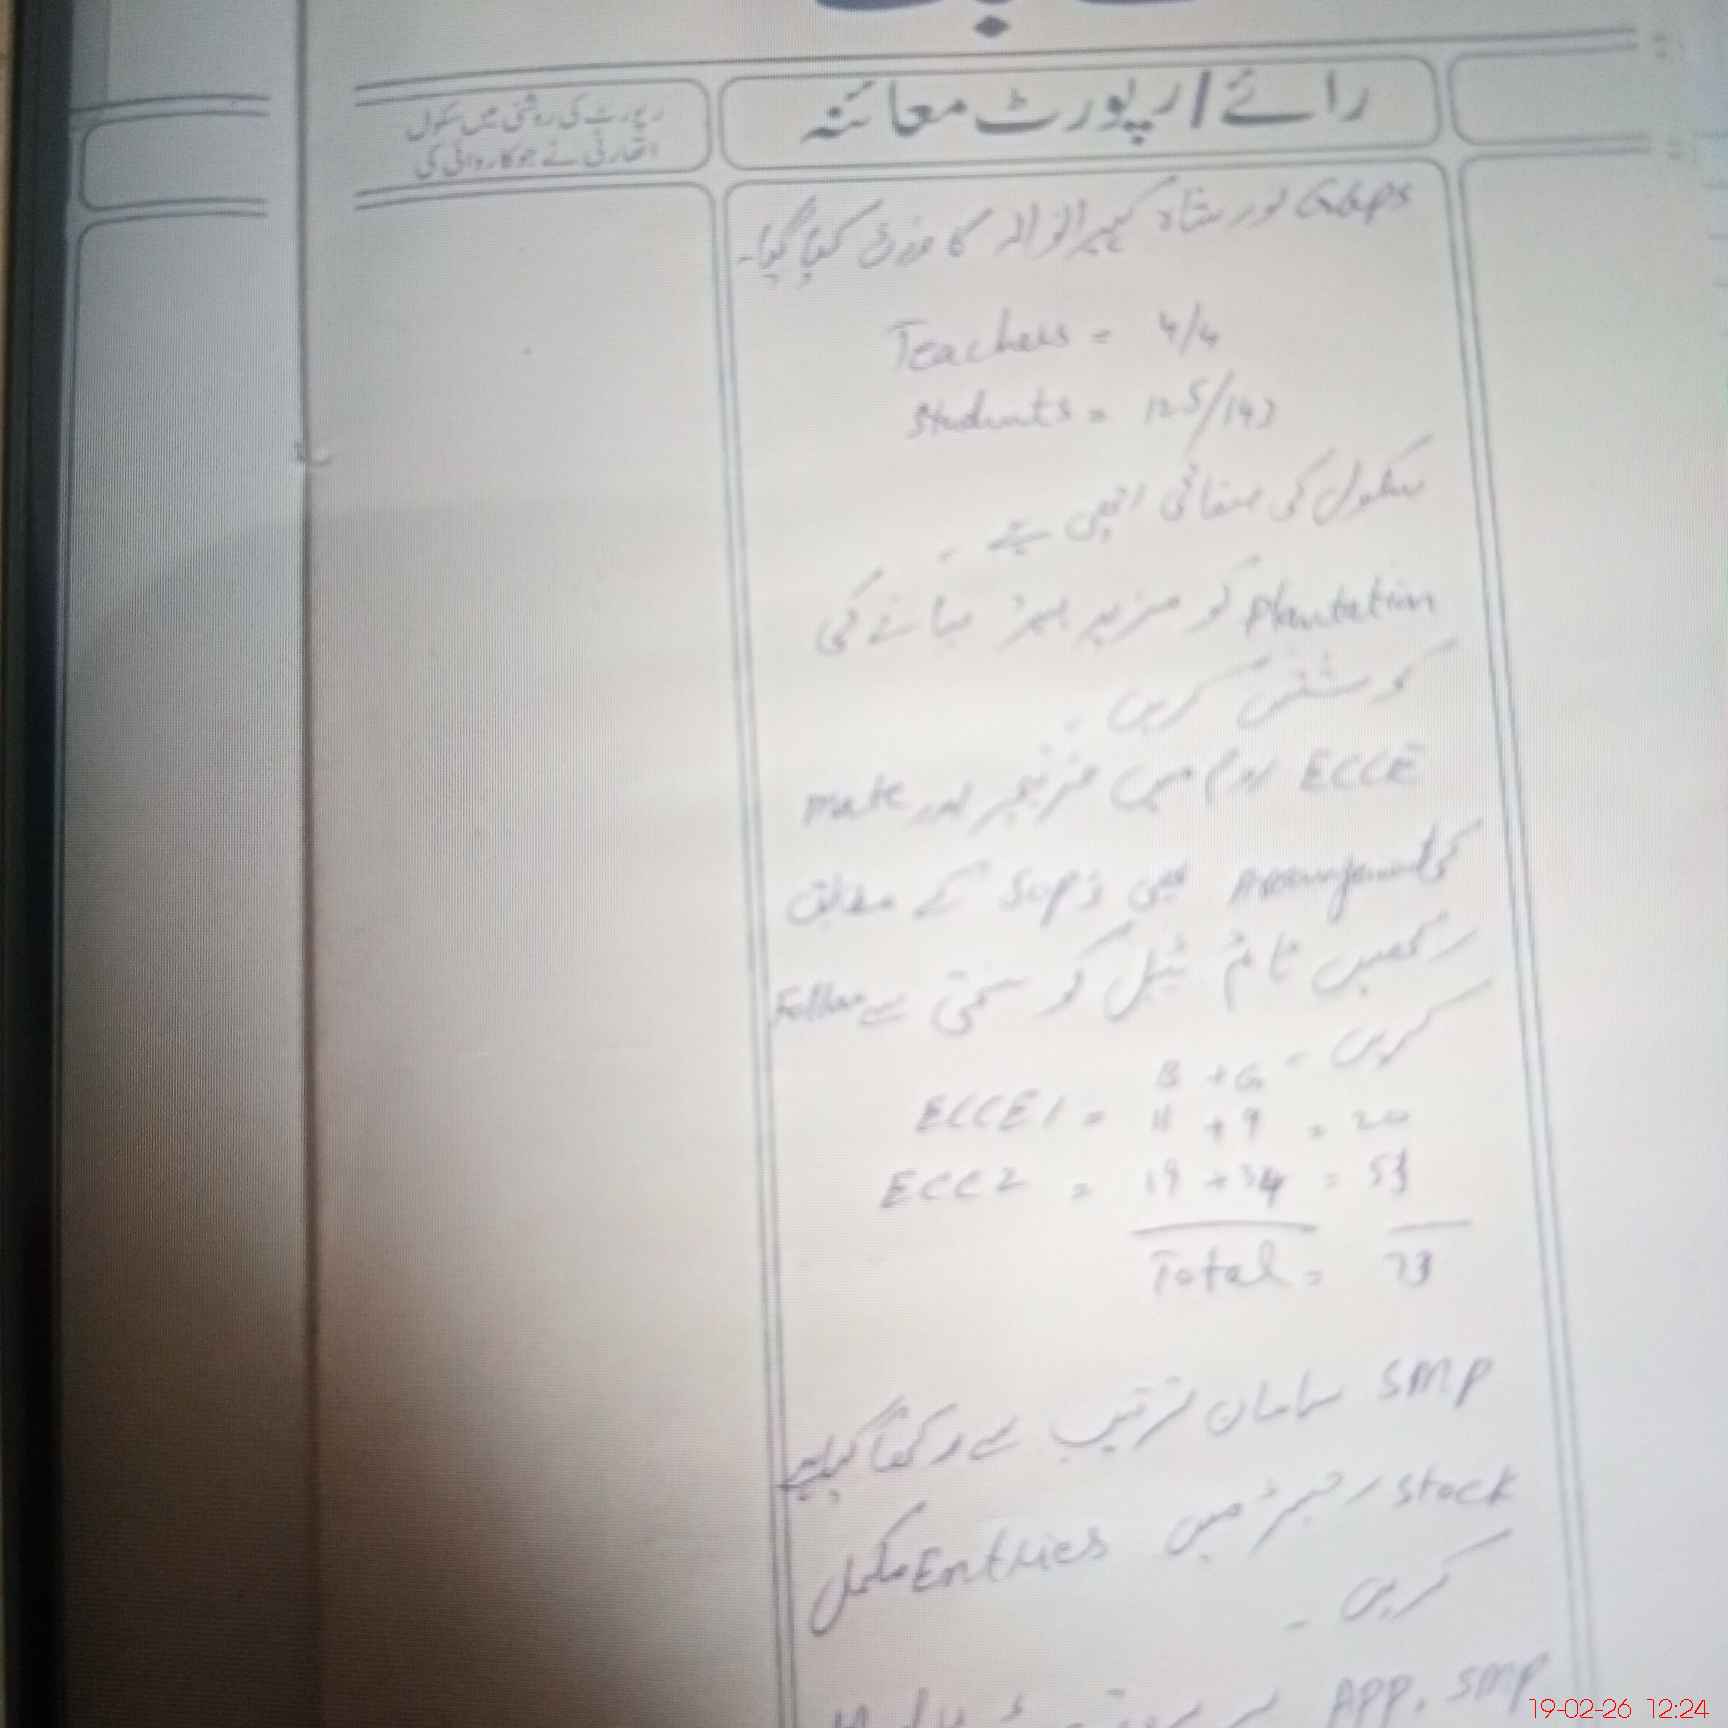 رائے/رپورٹ معائنہ
رپورٹ کی روشنی میں سکول
اتھارٹی نے جو کاروائی کی
GGPS نور شاہ کا وزٹ کیا گیا۔
Teachers = 4/4
Students = 125/143
سکول کی صفائی اچھی ہے۔
Plantation کو مزید بہتر بنانے کی
کوشش کریں۔
ECCE روم میں فرنیچر اور mate
کی Arrangement بھی SOPs کے مطابق
رکھیں ٹائم ٹیبل کو سختی سے Follow
کریں۔
B + G
ECCE1 = 11 + 9 = 20
ECC2 = 19 + 34 = 53
Total = 73
SMP سامان ترتیب سے رکھا گیا ہے
Stock رجسٹر میں Entries مکمل
کریں۔
APP. SMP
19-02-26 12:24